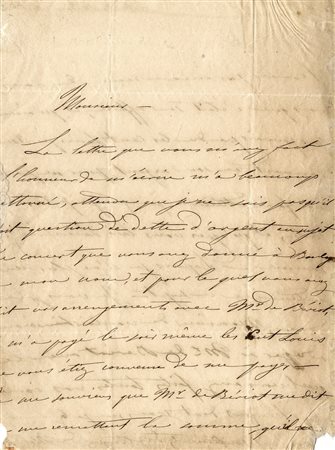 Monsieur —
La lettre que vous m'avez fait
l'honneur de m'écrire m'a beaucoup
attendu que je ne sais pas qu'il
est question de dette d'argent au sujet
concert que vous avez donné à
mon nom, et pour lequel vous avez
vos arrangements avec Mr. de Bériot,
m'a payé le soir même les Cent Louis
vous étiez convenu de me payer —
me souviens que Mr. de Bériot me dit
en me remettant la somme, qu'il